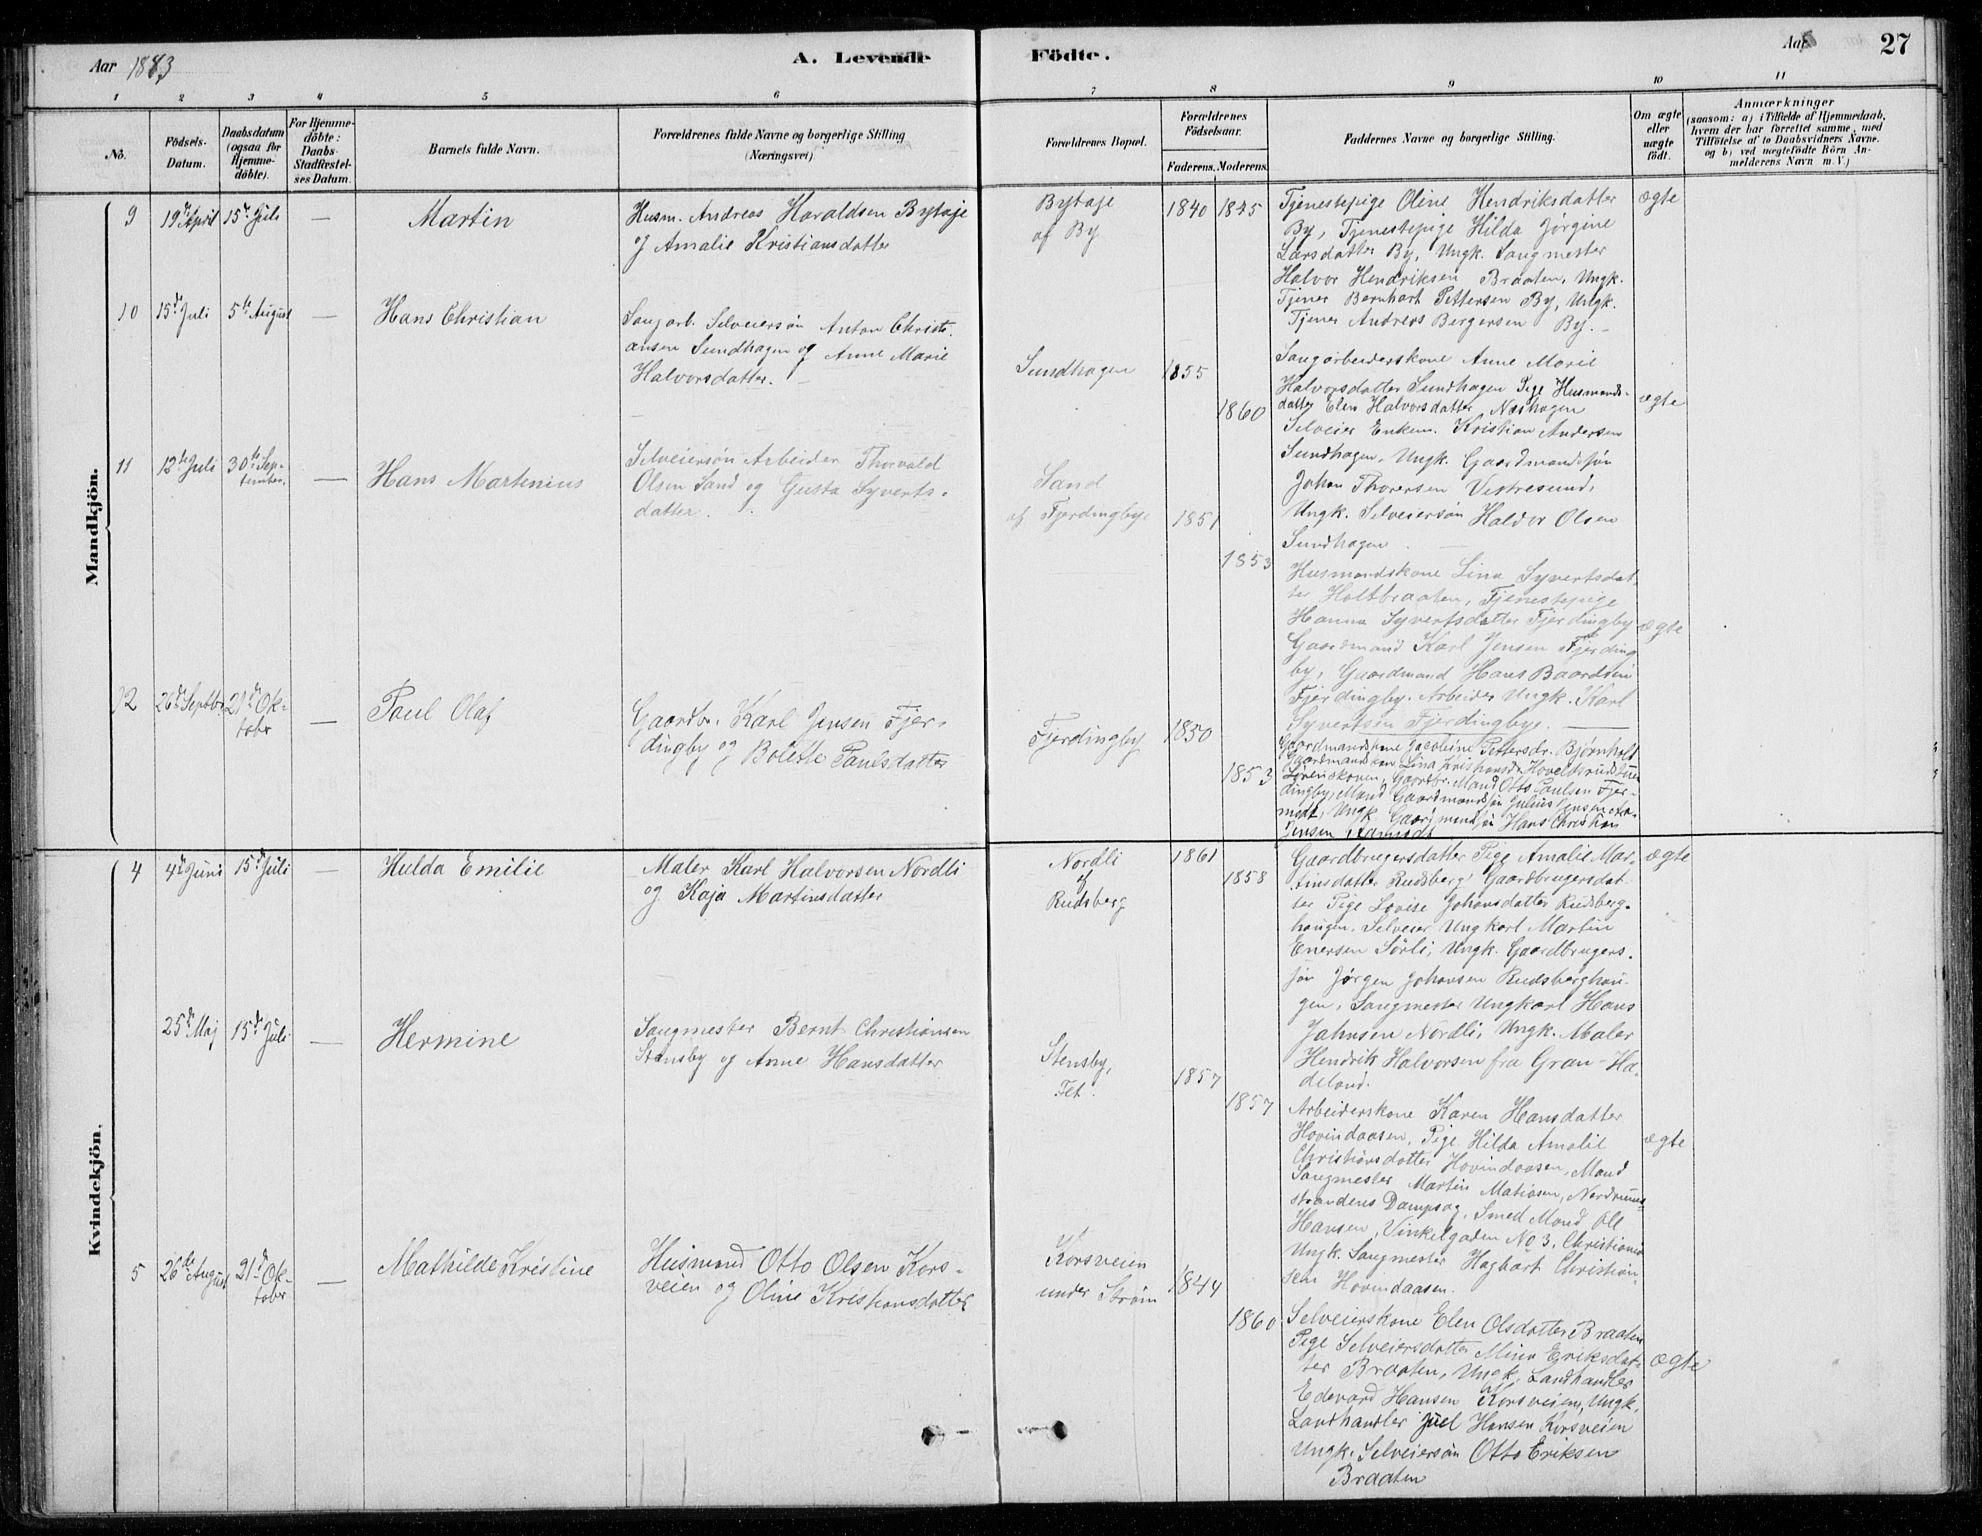 Aar 1883
A. Levende Födte.
Aar 27
1 2 3 4 5 6 7 8 9 10 11
No.
Födsels-Datum.
Daabsdatum (ogsaa for Hjemmedöbte).
For Hjemmedöbte: Daabs-Stadfæstelses Datum.
Barnets fulde Navn.
Forældrenes fulde Navne og borgerlige Stilling (Næringsvei)
Forældrenes Bopæl.
Forældrenes Födselsaar.
Faderens. Moderens.
Faddernes Navne og borgerlige Stilling.
Om ægte eller uægte födt.
Anmærkninger
(saasom: a) i Tilfælde af Hjemmedaab,
hvem der har forrettet samme, med
Tilföielse af to Daabsvidners Navne.
og b) ved uægtefödte Börn An-
melderens Navn m. V.)
Mandkjön.
9 19de April 15de Juli — Martin
Husm. Andreas Haraldsen Bytaje
og Amalie Kristiansdatter
Bytaje
af By
1840 1845
Tjenestepige Oline Hendriksdatter
By, Tjenestepige Hilda Jørgine
Larsdatter By, Ungk. Saugmester
Halvor Hendriksen Braaten, Ungk.
Tjener Bernhart Pettersen By, Ungk.
Tjener Andreas Bergersen By.
ægte
10 15de Juli 5te August — Hans Christian
Saugarb. Selveiersøn Anton Christi-
ansen Sundhagen og Anne Marie
Halvorsdatter. —
Sundhagen
1855 1860
Saugarbeiderskone Anne Marie
Halvorsdatter Sundhagen Pige Husmands-
datter Elen Halvorsdatter Næshagen
Selveier Enkem. Kristian Andersen
Sundhagen, Ungk. Gaardmandssøn
Johan Thoresen Vestresund,
Ungk. Selveiersøn Haldor Olsen
Sundhagen. —
ægte
11 12te Juli 30te September. — Hans Martenius
Selveiersøn Arbeider Thorvald
Olsen Sand og Gusta Syverts-
datter.
Sand
af Fjerdingbye
1851 1853
Husmandskone Lina Syvertsdat-
ter Holtbraaten, Tjenestepige
Hanna Syvertsdatter Fjerdingby
Gaardmand Karl Jensen Fjerding
by, Gaardmand Hans Baardsen
Fjerdingby. Arbeider Ungk. Karl
Syvertsen Fjerdingbye. —
ægte
12 26de Septbr 21de Oktober — Paul Olaf
Gaardbr. Karl Jensen Fjer-
dingby og Bolette Paulsdatter
Fjerdingby
1850 1853
Gaardmandskone Jacobine Pettersdr. Bjørnholt
Gaardmandskone Lina Kristiansdr Hovelsrud
Lørenskoven, Gaardbr. Mand Otto Paulsen Fjer-
dingby, Mand Gaardmandssøn Julius Jensen
Ungk. Gaardmandssøn Hans Christian
Jensen
Kvindekjön.
4 4de Juni 15de Juli Hulda Emilie
Maler Karl Halvorsen Nordli
og Kaja Martinsdatter
Nordli
af
Rudsberg
1861 1858
Gaardbrugersdatter Pige Amalie Mar-
tinsdatter Rudsberg Gaardbrugersdat-
ter Pige Lovise Johansdatter Rudsberg-
haugen, Selveier Ungkarl Martin
Enersen Sørli, Ungk. Gaardbrugers-
søn Jørgen Johansen Rudsberghau-
gen, Saugmester Ungkarl Hans
Jahnsen Nordli, Ungk. Maler
Hendrik Halvorsen fra Gran-Ha-
deland.
ægte
25de Maj 15de Juli — Hermine
Saugmester Bernt Christiansen
Stensby og Anne Hansdatter
Stensby,
Fet.
1857 1857
Arbeiderskone Karen Hansdatter
Hovindaasen, Pige Hilda Amalie
Christiansdatter Hovindaasen, Mand
Saugmester Martin Matiasen, Nordruns-
strandens Dampsag, Smed Mand Ole
Hansen, Vinkelgaden No 3, Christiania
Ungk. Saugmester Hagbart Christian-
sen Hovindaasen.
ægte
5 26de August 21de Oktober — Mathilde Kristine
Husmand Otto Olsen Kors-
veien og Oline Kristiansdatter
Korsveien
under Strøm
1844 1860
Selveierskone Elen Olsdatter Braaten
Pige Selveiersdatter Mina Eriksdat-
ter Braaten, Ungk. Landhandler
Edevard Hansen Korsveien, Ungk.
Landhandler Juel Hansen Korsveien
Ungk. Selveiersøn Otto Eriksen
Braaten
ægte